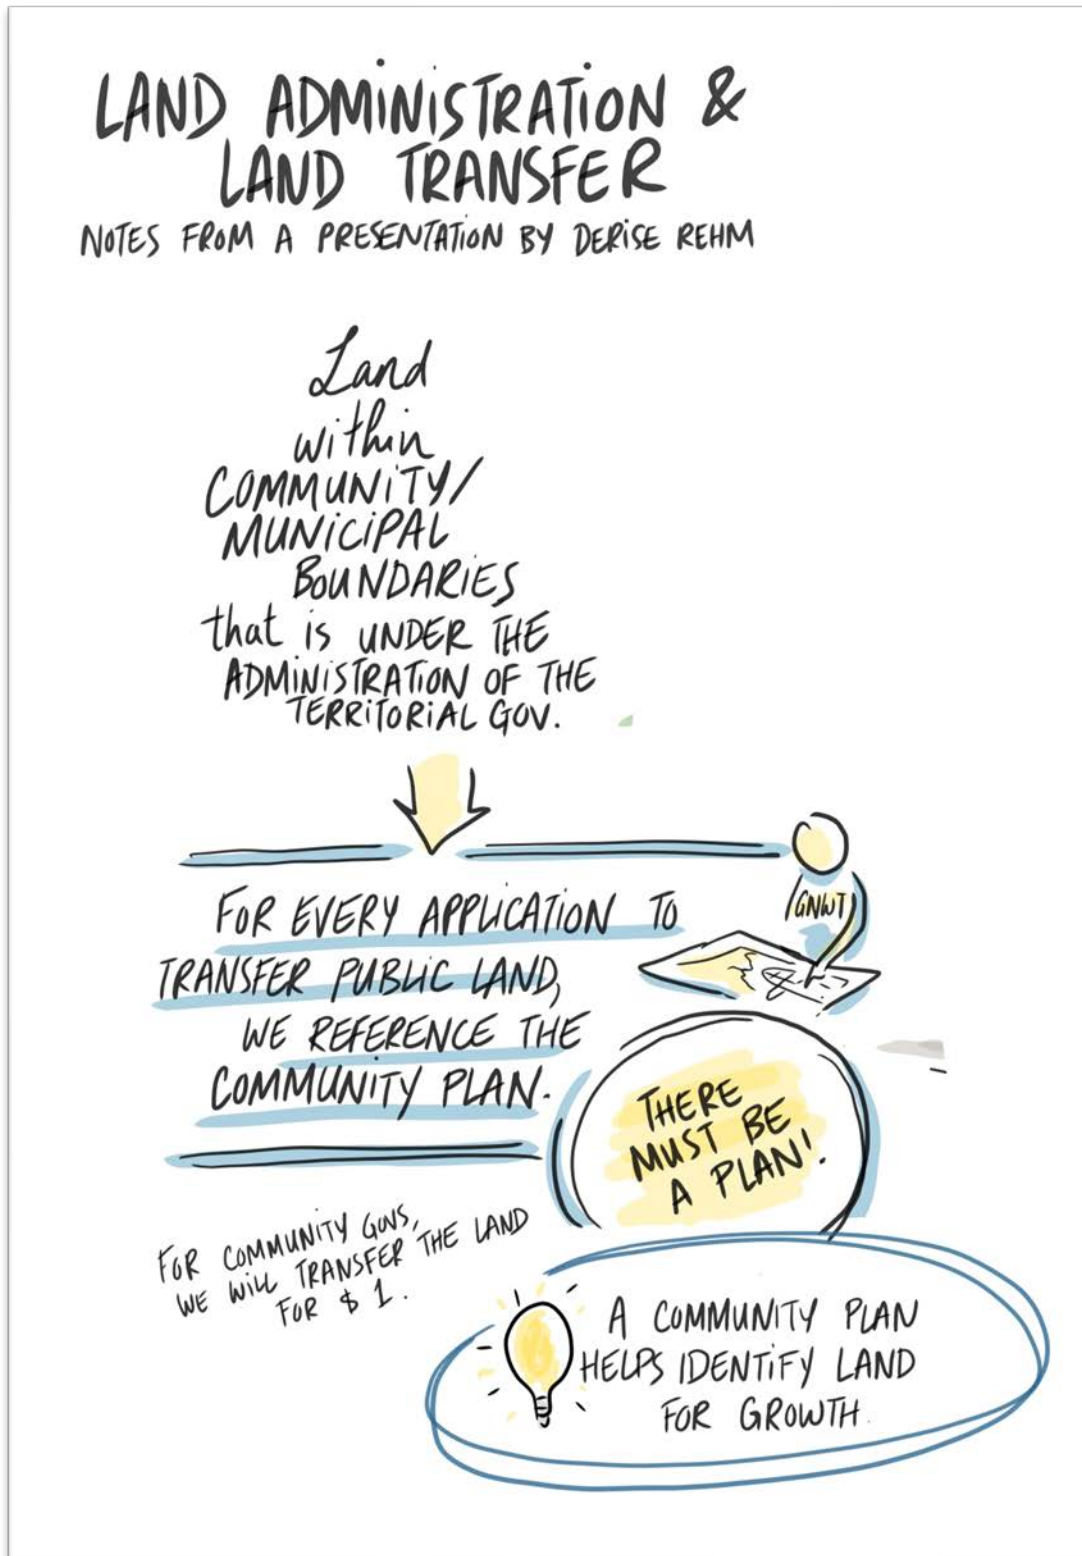 LAND ADMINISTRATION &
LAND TRANSFER
NOTES FROM A PRESENTATION BY DERISE REHM
Land
within
COMMUNITY/
MUNICIPAL
BOUNDARIES
that is UNDER THE
ADMINISTRATION OF THE
TERRITORIAL GOV.
FOR EVERY APPLICATION TO
TRANSFER PUBLIC LAND,
WE REFERENCE THE
COMMUNITY PLAN.
GNWT
THERE
MUST BE
A PLAN!
FOR COMMUNITY GOVS,
WE WILL TRANSFER THE LAND
FOR $ 1.
A COMMUNITY PLAN
HELPS IDENTIFY LAND
FOR GROWTH.